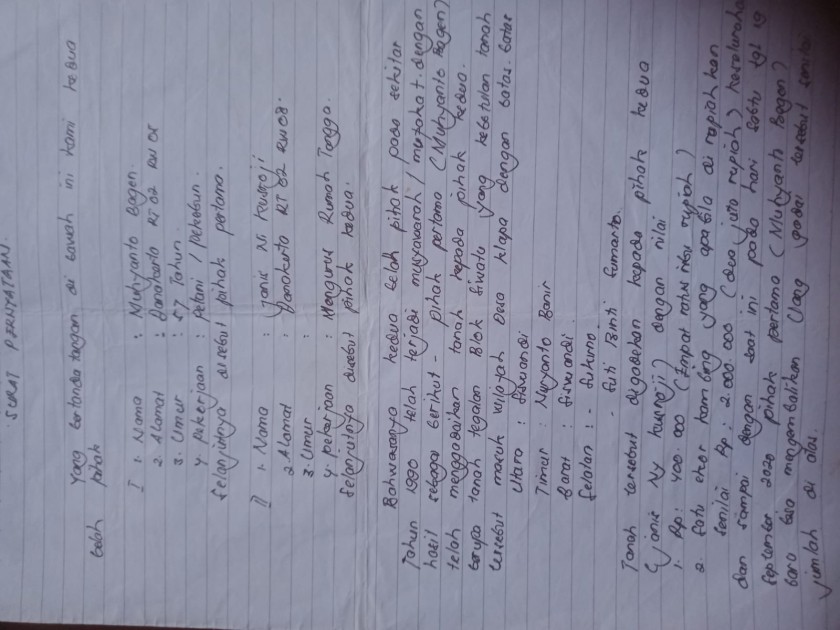 SURAT PERNYATAAN.
Yang bertanda tangan di bawah ini kami kedua
belah pihak
I 1. Nama : Muhyanto Bagen.
2. Alamat : Danakerto RT 02 RW 05
3. Umur : 57 Tahun.
4. pekerjaan : petani / pekebun.
selanjutnya disebut pihak pertama.
II 1. Nama : Ny
2. Alamat : Danakerto RT 02 RW 08.
3. Umur :
4. pekerjaan : Mengurus Rumah Tangga.
selanjutnya disebut pihak kedua.
Bahwasanya kedua belah pihak pada sekitar
Tahun 1990 telah terjadi musyawarah / mufakat dengan
hasil sebagai berikut - pihak pertama (Muhyanto Bagen)
telah menggadaikan tanah kepada pihak kedua.
berupa tanah tegalan Blok Siwatu yang kebetulan tanah
tersebut masuk wilayah Desa Klapa dengan batas-batas
Utara : Siswandi
Timur : Nuryanto Banir
Barat : Siswandi
Selatan : - Sukirno
- Siti Binti Sumarto.
Tanah tersebut digadekan kepada pihak kedua
Ny dengan nilai
1. Rp: 400.000 (Empat ratus ribu rupiah)
2. Satu ekor kambing yang apabila di rupiahkan
senilai Rp: 2.000.000 (dua juta rupiah)
dan sampai dengan saat ini pada hari Sabtu tgl 19
September 2020 pihak pertama (Muhyanto Bagen)
baru bisa mengembalikan Uang gadai tersebut senilai
jumlah di atas.